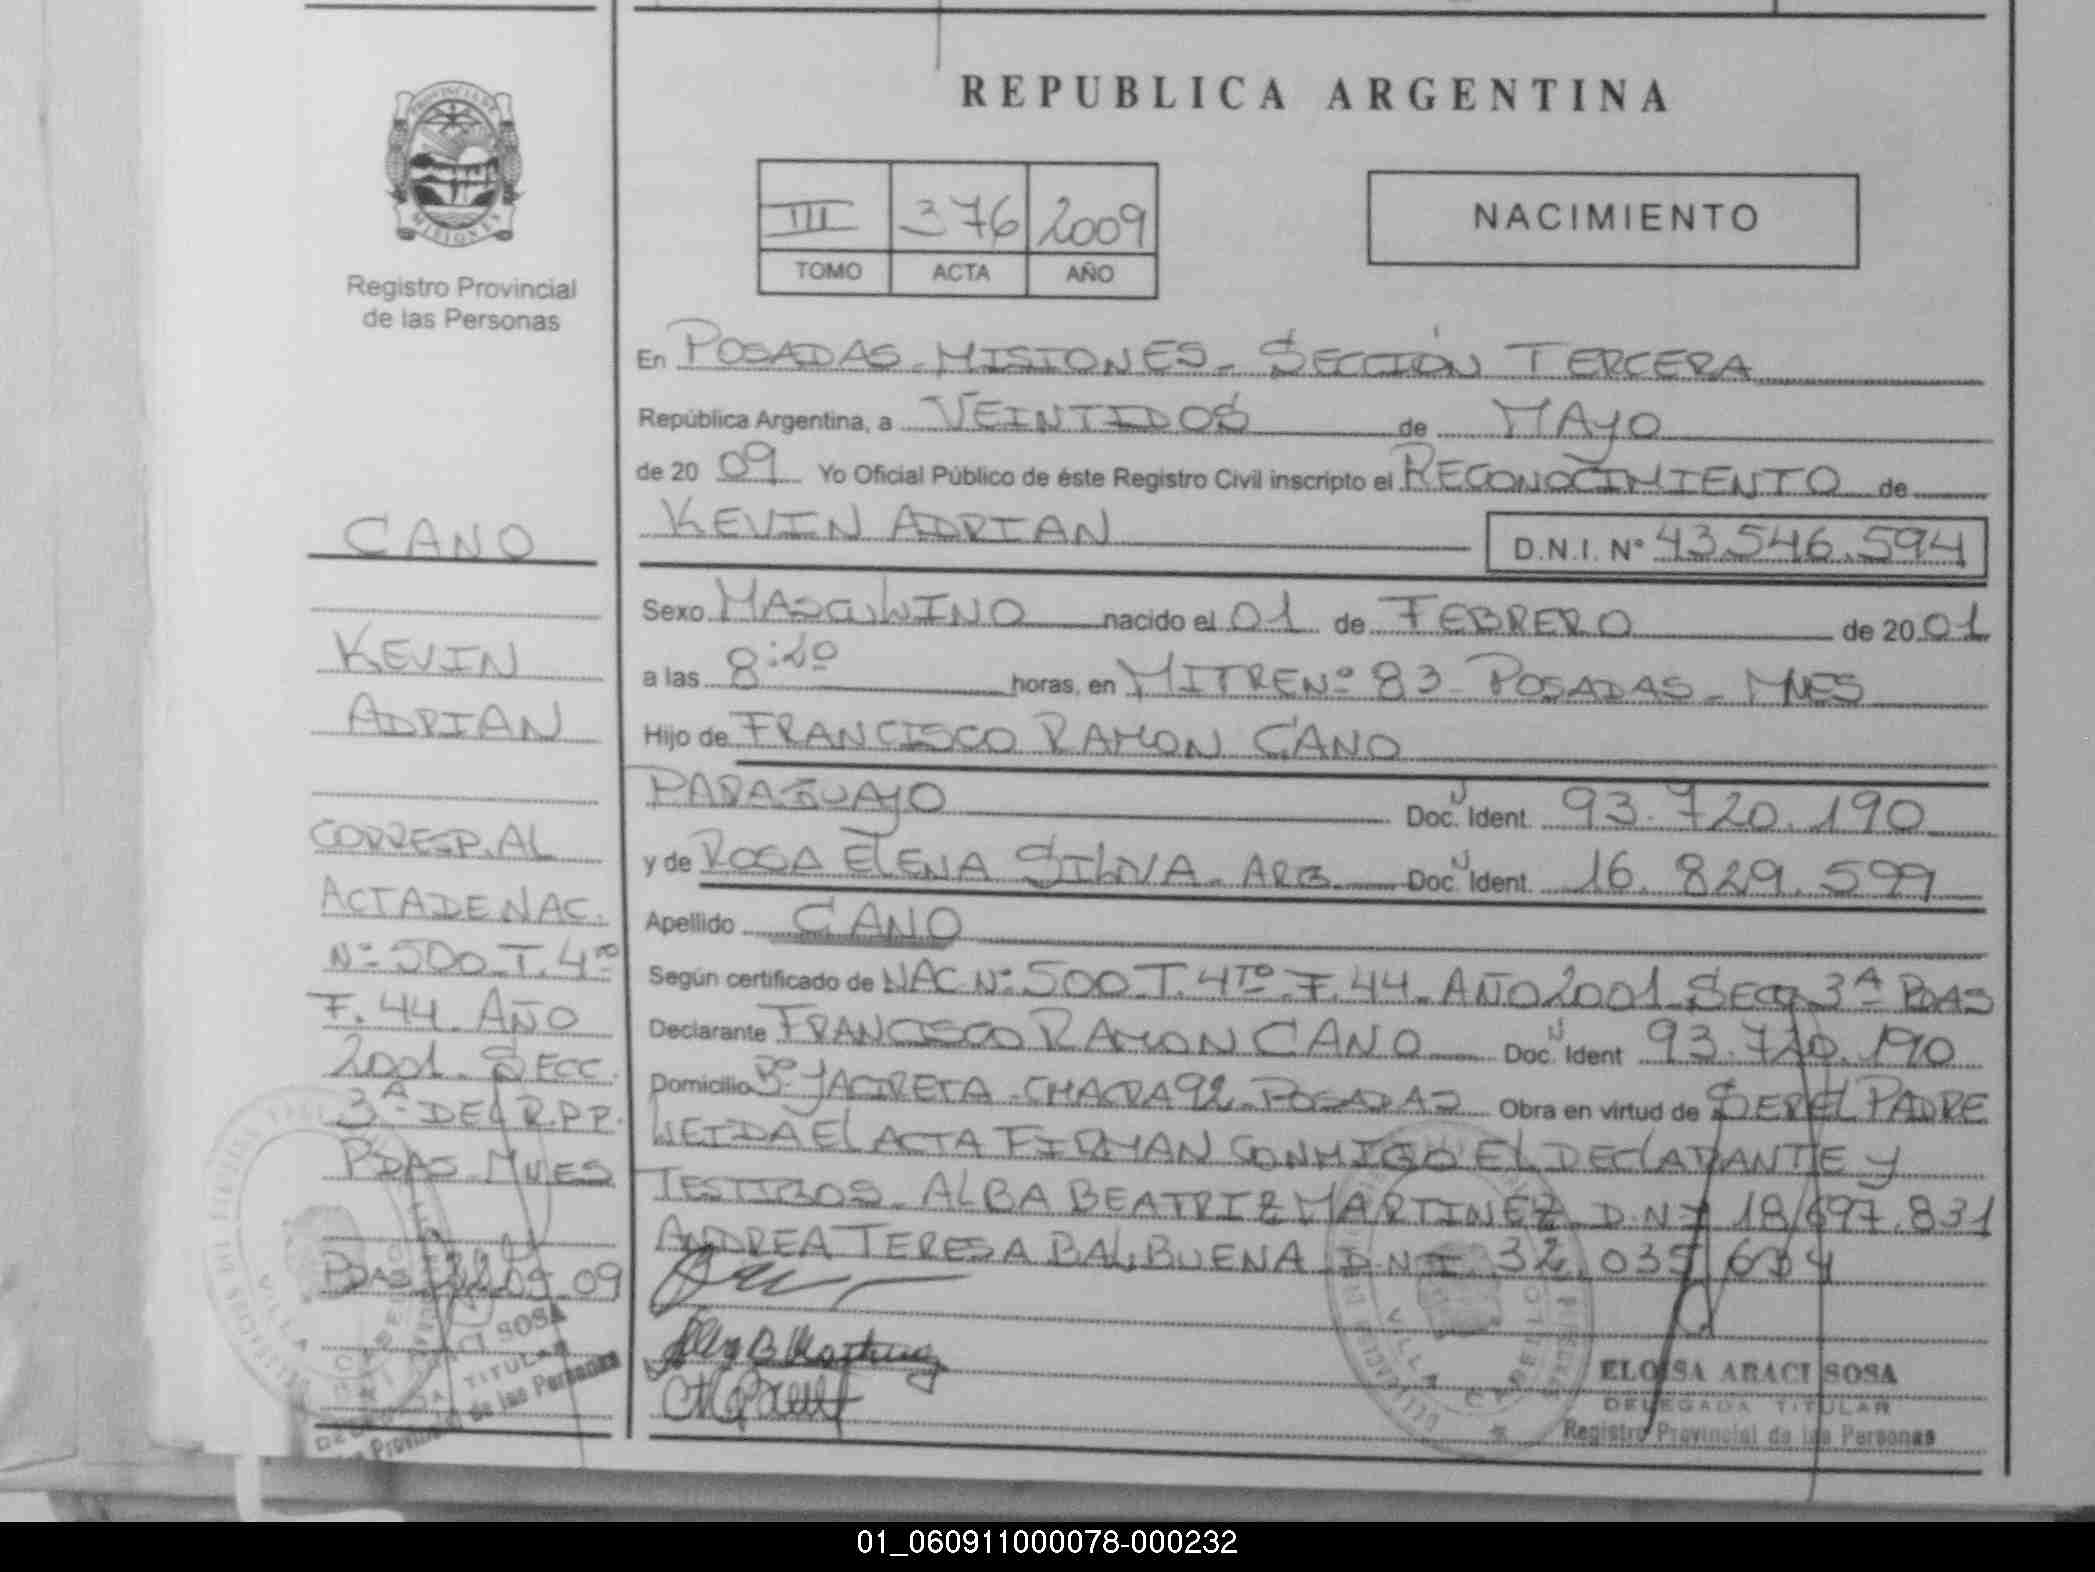 REPUBLICA ARGENTINA
PROVINCIA DE
MISIONES
Registro Provincial
de las Personas
III 376 2009
TOMO ACTA AÑO
NACIMIENTO
En POSADAS - MISIONES - SECCIÓN TERCERA
República Argentina, a VEINTIDOS de MAYO
de 20 09 Yo Oficial Público de éste Registro Civil inscripto el RECONOCIMIENTO de
KEVIN ADRIAN D.N.I. N° 43.546.594
Sexo MASCULINO nacido el 01 de FEBRERO de 20 01
a las 8:20 horas, en MITRE Nº 83 - POSADAS - MNES
Hijo de FRANCISCO RAMON CANO
PARAGUAYO Doc. Ident. 93.720.190
y de ROSA ELENA SILVA - ARG. Doc. Ident. 16.829.599
Apellido CANO
Según certificado de NAC Nº 500 T. 4TO F. 44 - AÑO 2001 - SECC 3A PDAS
Declarante FRANCISCO RAMON CANO Doc. Ident 93.720.190
Domicilio Bº YACIRETA - CHACRA 92 - POSADAS Obra en virtud de SER EL PADRE
LEIDA EL ACTA FIRMAN CONMIGO EL DECLARANTE Y
TESTIGOS - ALBA BEATRIZ MARTINEZ D.N.I 18.697.831
ANDREA TERESA BALBUENA D.N.I. 32.035.
ELOISA ARACI SOSA
DELEGADA TITULAR
Registro Provincial de las Personas
CANO
KEVIN
ADRIAN
CORRESP. AL
ACTA DE NAC.
Nº 500 T. 4TO
F. 44 - AÑO
2001 - SECC.
3A DEL R.P.P.
PDAS - MNES
PDAS 22.05.09
VILLA CABELLO
ARACI SOSA
DELEGADA TITULAR
Provincial de las Personas
VILLA CABELLO
01_060911000078-000232